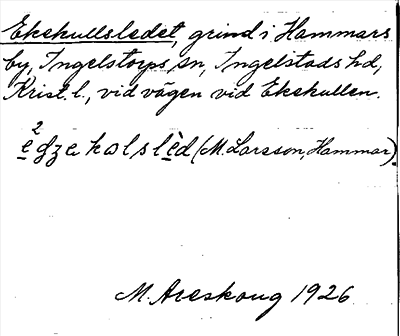 Ekekullsledet, grind i Hammars
by, Ingelstorps sn, Ingelstads hd,
Krist. l., vid vägen vid Ekekullen.
(M. Larsson, Hammar).
M. Areskoug 1926